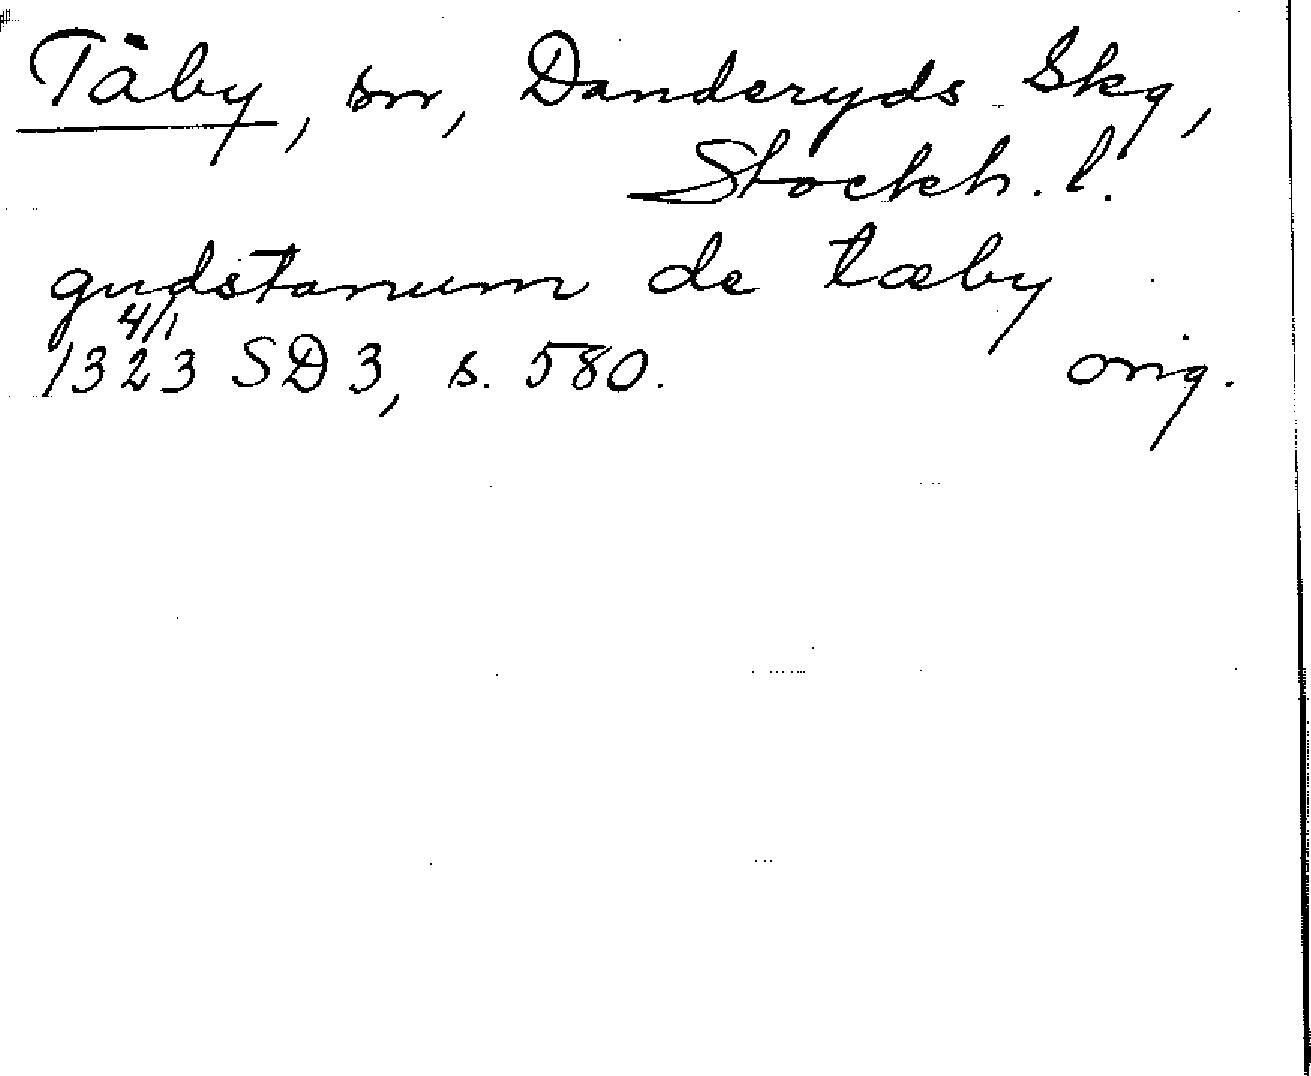 Täby, sn, Danderyds Skg,
Stockh. l.
gudstanum de tæby
4/1
1323 SD 3, s. 580. orig.